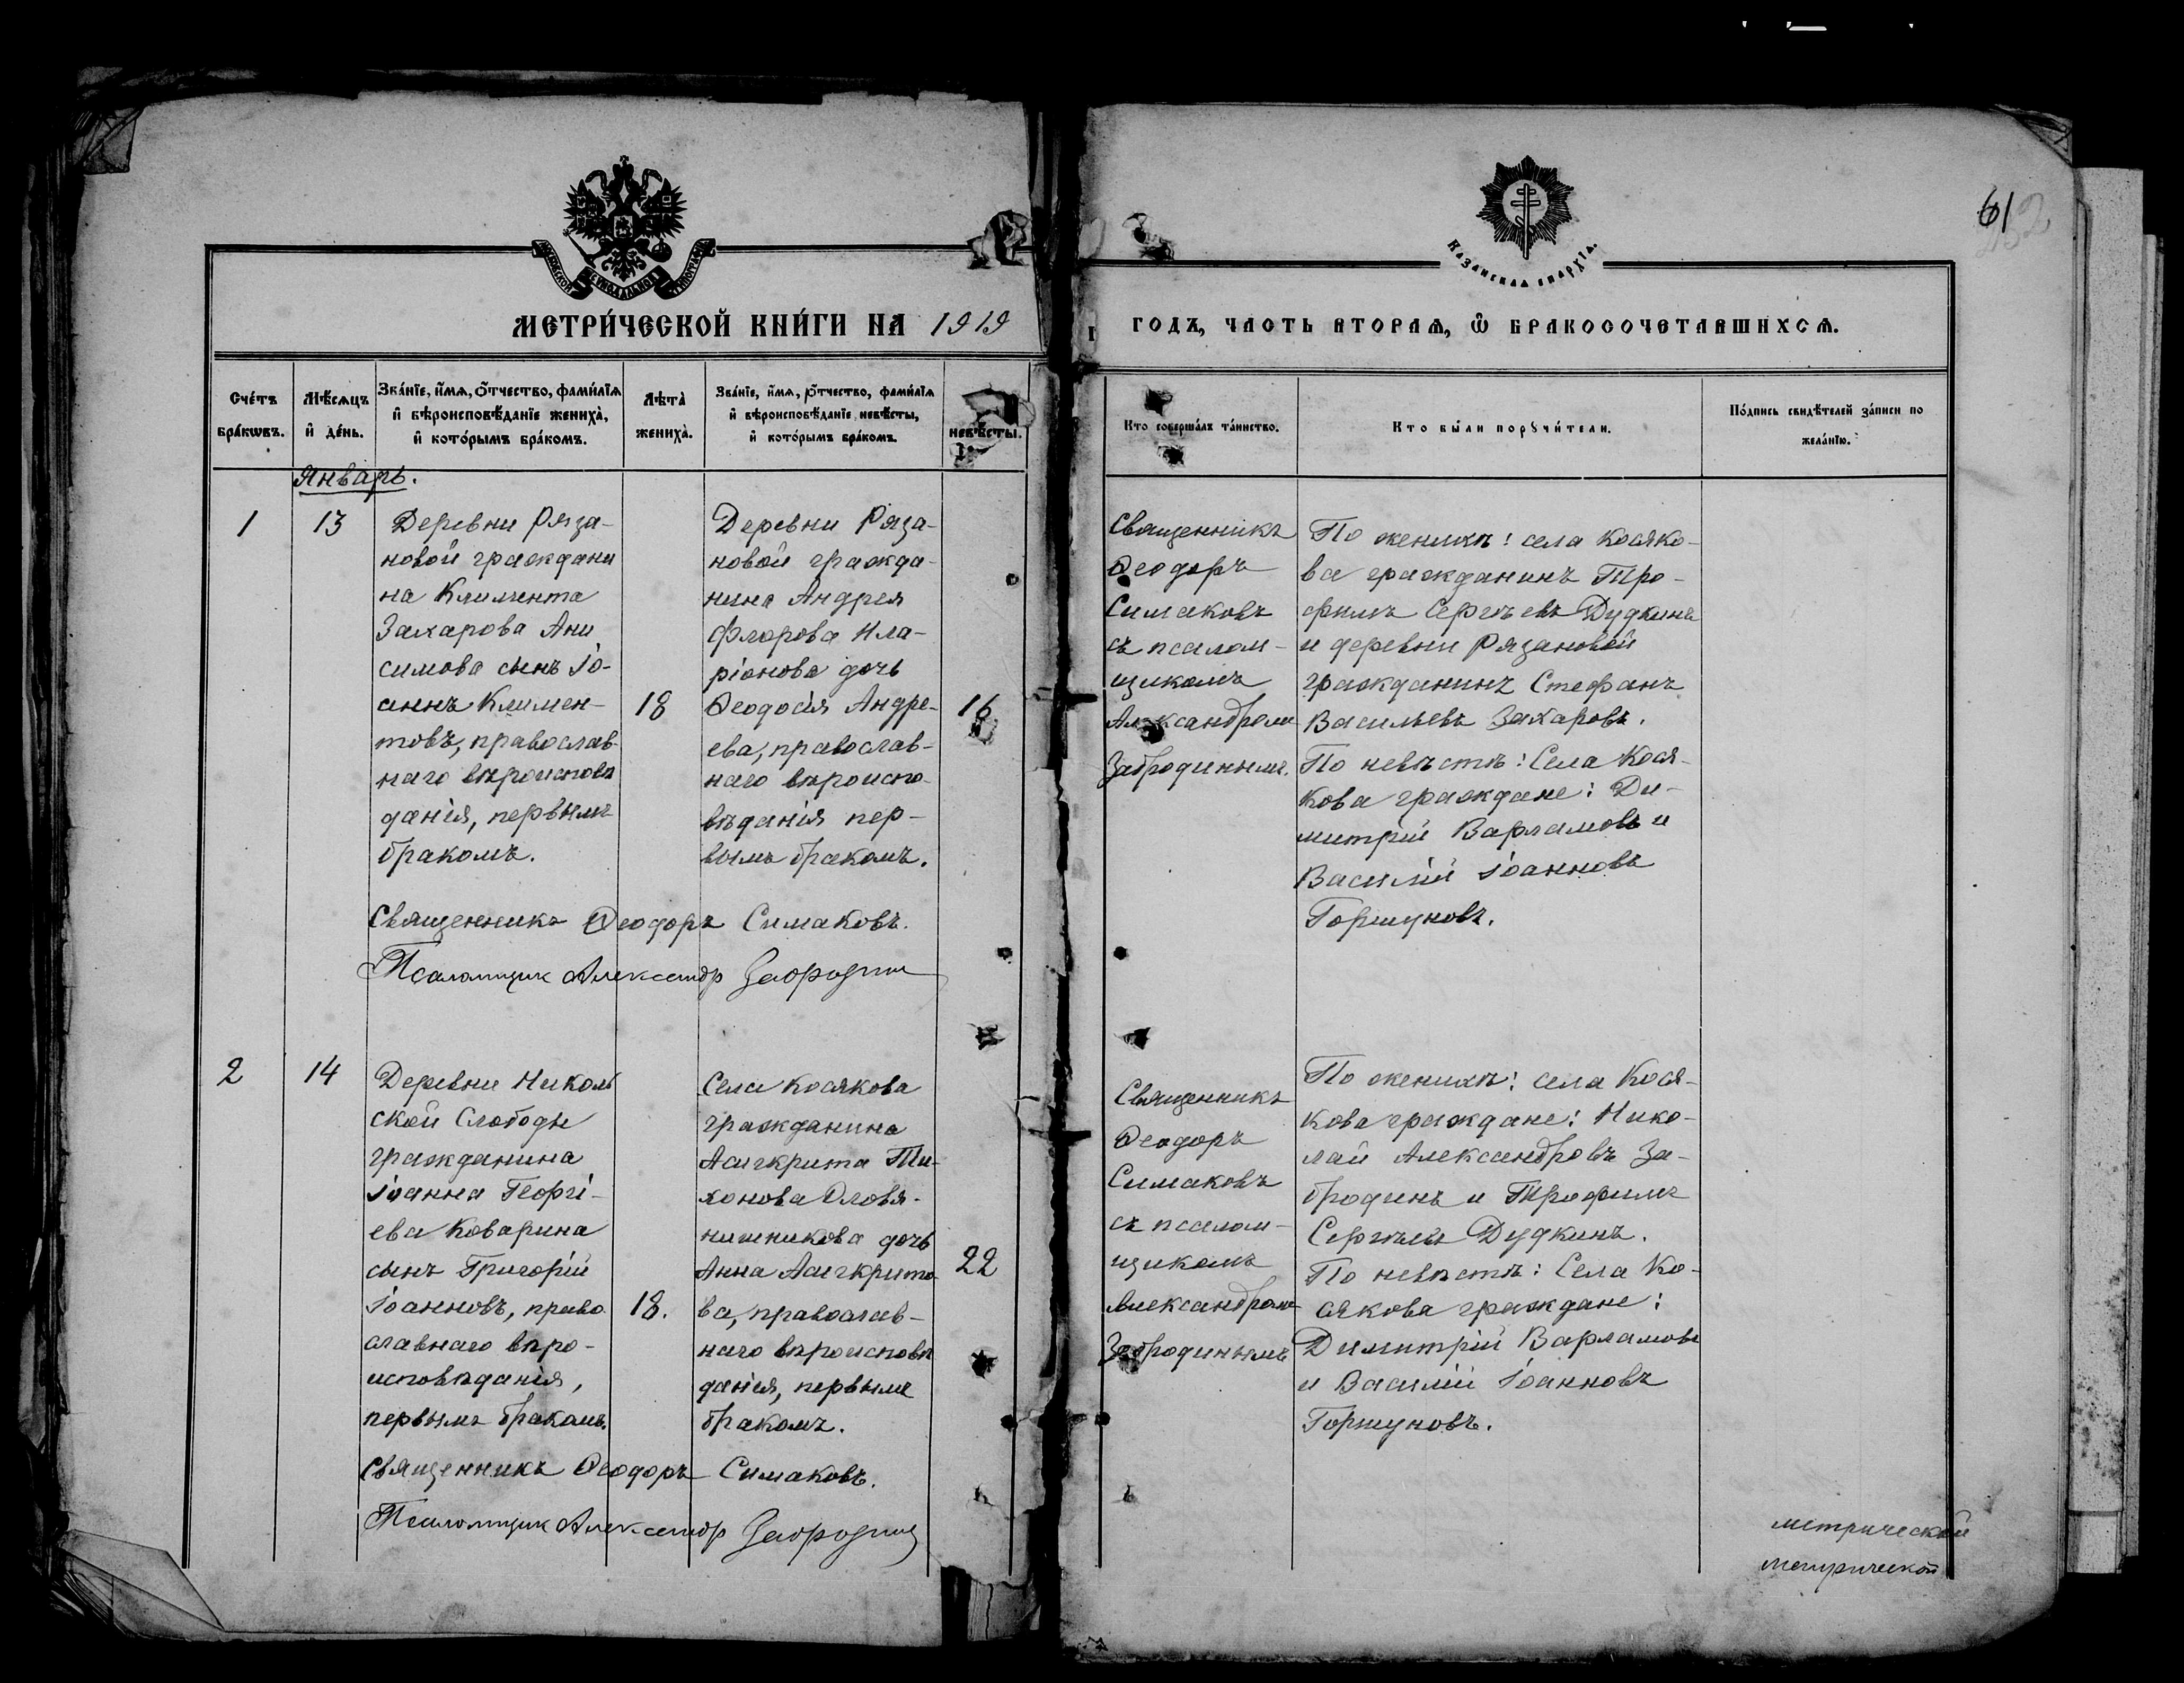 61
КАЗАНСКАЯ ЕПАРХІА.
МЕТРИ́ЧЕСКОЙ КНИ́ГИ НА 1919
ГОДЪ, ЧАСТЬ ВТОРАѦ, Ѡ БРАКОСОЧЕТАВШИХСѦ.
Сче́тъ бра́кѡвъ.
Мѣ́сѧцъ и҆ де́нь.
Зва́нїе, и҆́мѧ, ѻ҆́тчество, фами́лїѧ
и҆ вѣроисповѣ́данїе жениха̀,
и҆ кото́рымъ бра́комъ.
Лѣта̀ жениха̀.
Зва́нїе, и҆́мѧ, ѻ҆́тчество, фами́лїѧ
и҆ вѣроисповѣ́данїе невѣ́сты,
и҆ кото́рымъ бра́комъ.
невѣ́сты.
Кто соверша́лъ та́инство.
Кто бы́ли порꙋчи́тели.
По́дпись свидѣ́телей за́писи по
жела́нїю.
Январь.
1
13
Деревни Ряза-
новой граждани
на Климента
Захарова Ани
симова сынъ Іо-
аннъ Климен-
товъ, православ-
наго вѣроисповѣ
данія, первымъ
бракомъ.
18
Деревни Ряза-
новой гражда-
нина Андрея
Флорова Ила-
ріонова дочь
Ѳеодосія Андре-
ева, православ-
наго вѣроиспо-
вѣданія пер-
вымъ бракомъ.
16
Священникъ
Ѳеодоръ
Симаковъ
съ псалом-
щикомъ
Александромъ
Забродинымъ.
По женихѣ: села Косяко-
ва гражданинъ Тро-
фимъ Сергѣевъ Дудкинъ
и деревни Рязановой
гражданинъ Стефанъ
Васильевъ Захаровъ.
По невѣстѣ: Села Кося-
кова граждане: Ди-
митрій Варламовъ и
Василій Іоанновъ
Горшуновъ.
Священникъ Ѳеодоръ Симаковъ.
Псаломщик Александр Забродин
2
14
Деревни Николь
ской Слободы
гражданина
Іоанна Георгі-
ева Коварина
сынъ Григорій
Іоанновъ, право
славнаго вѣро-
исповѣданія,
первымъ бракомъ.
18.
Села Косякова
гражданина
Асигкрита Ти-
хонова Оловя-
нишникова дочь
Анна Асигкрито-
ва, православ-
наго вѣроисповѣ
данія, первымъ
бракомъ.
22
Священникъ
Ѳеодоръ
Симаковъ
съ псалом-
щикомъ
Александромъ
Забродинымъ
По женихѣ: села Кося-
кова граждане: Нико-
лай Александровъ За-
бродинъ и Трофимъ
Сергѣевъ Дудкинъ.
По невѣстѣ: Села Ко-
сякова граждане:
Димитрій Варламовъ
и Василій Іоанновъ
Горшуновъ.
Священникъ Ѳеодоръ Симаковъ.
Псаломщик Александр Забродин
метрической
метрической